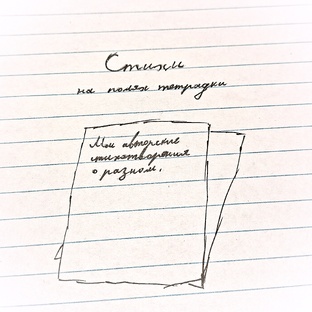 Стихи
на полях тетрадки
Мои авторские
стихотворения
о разном.